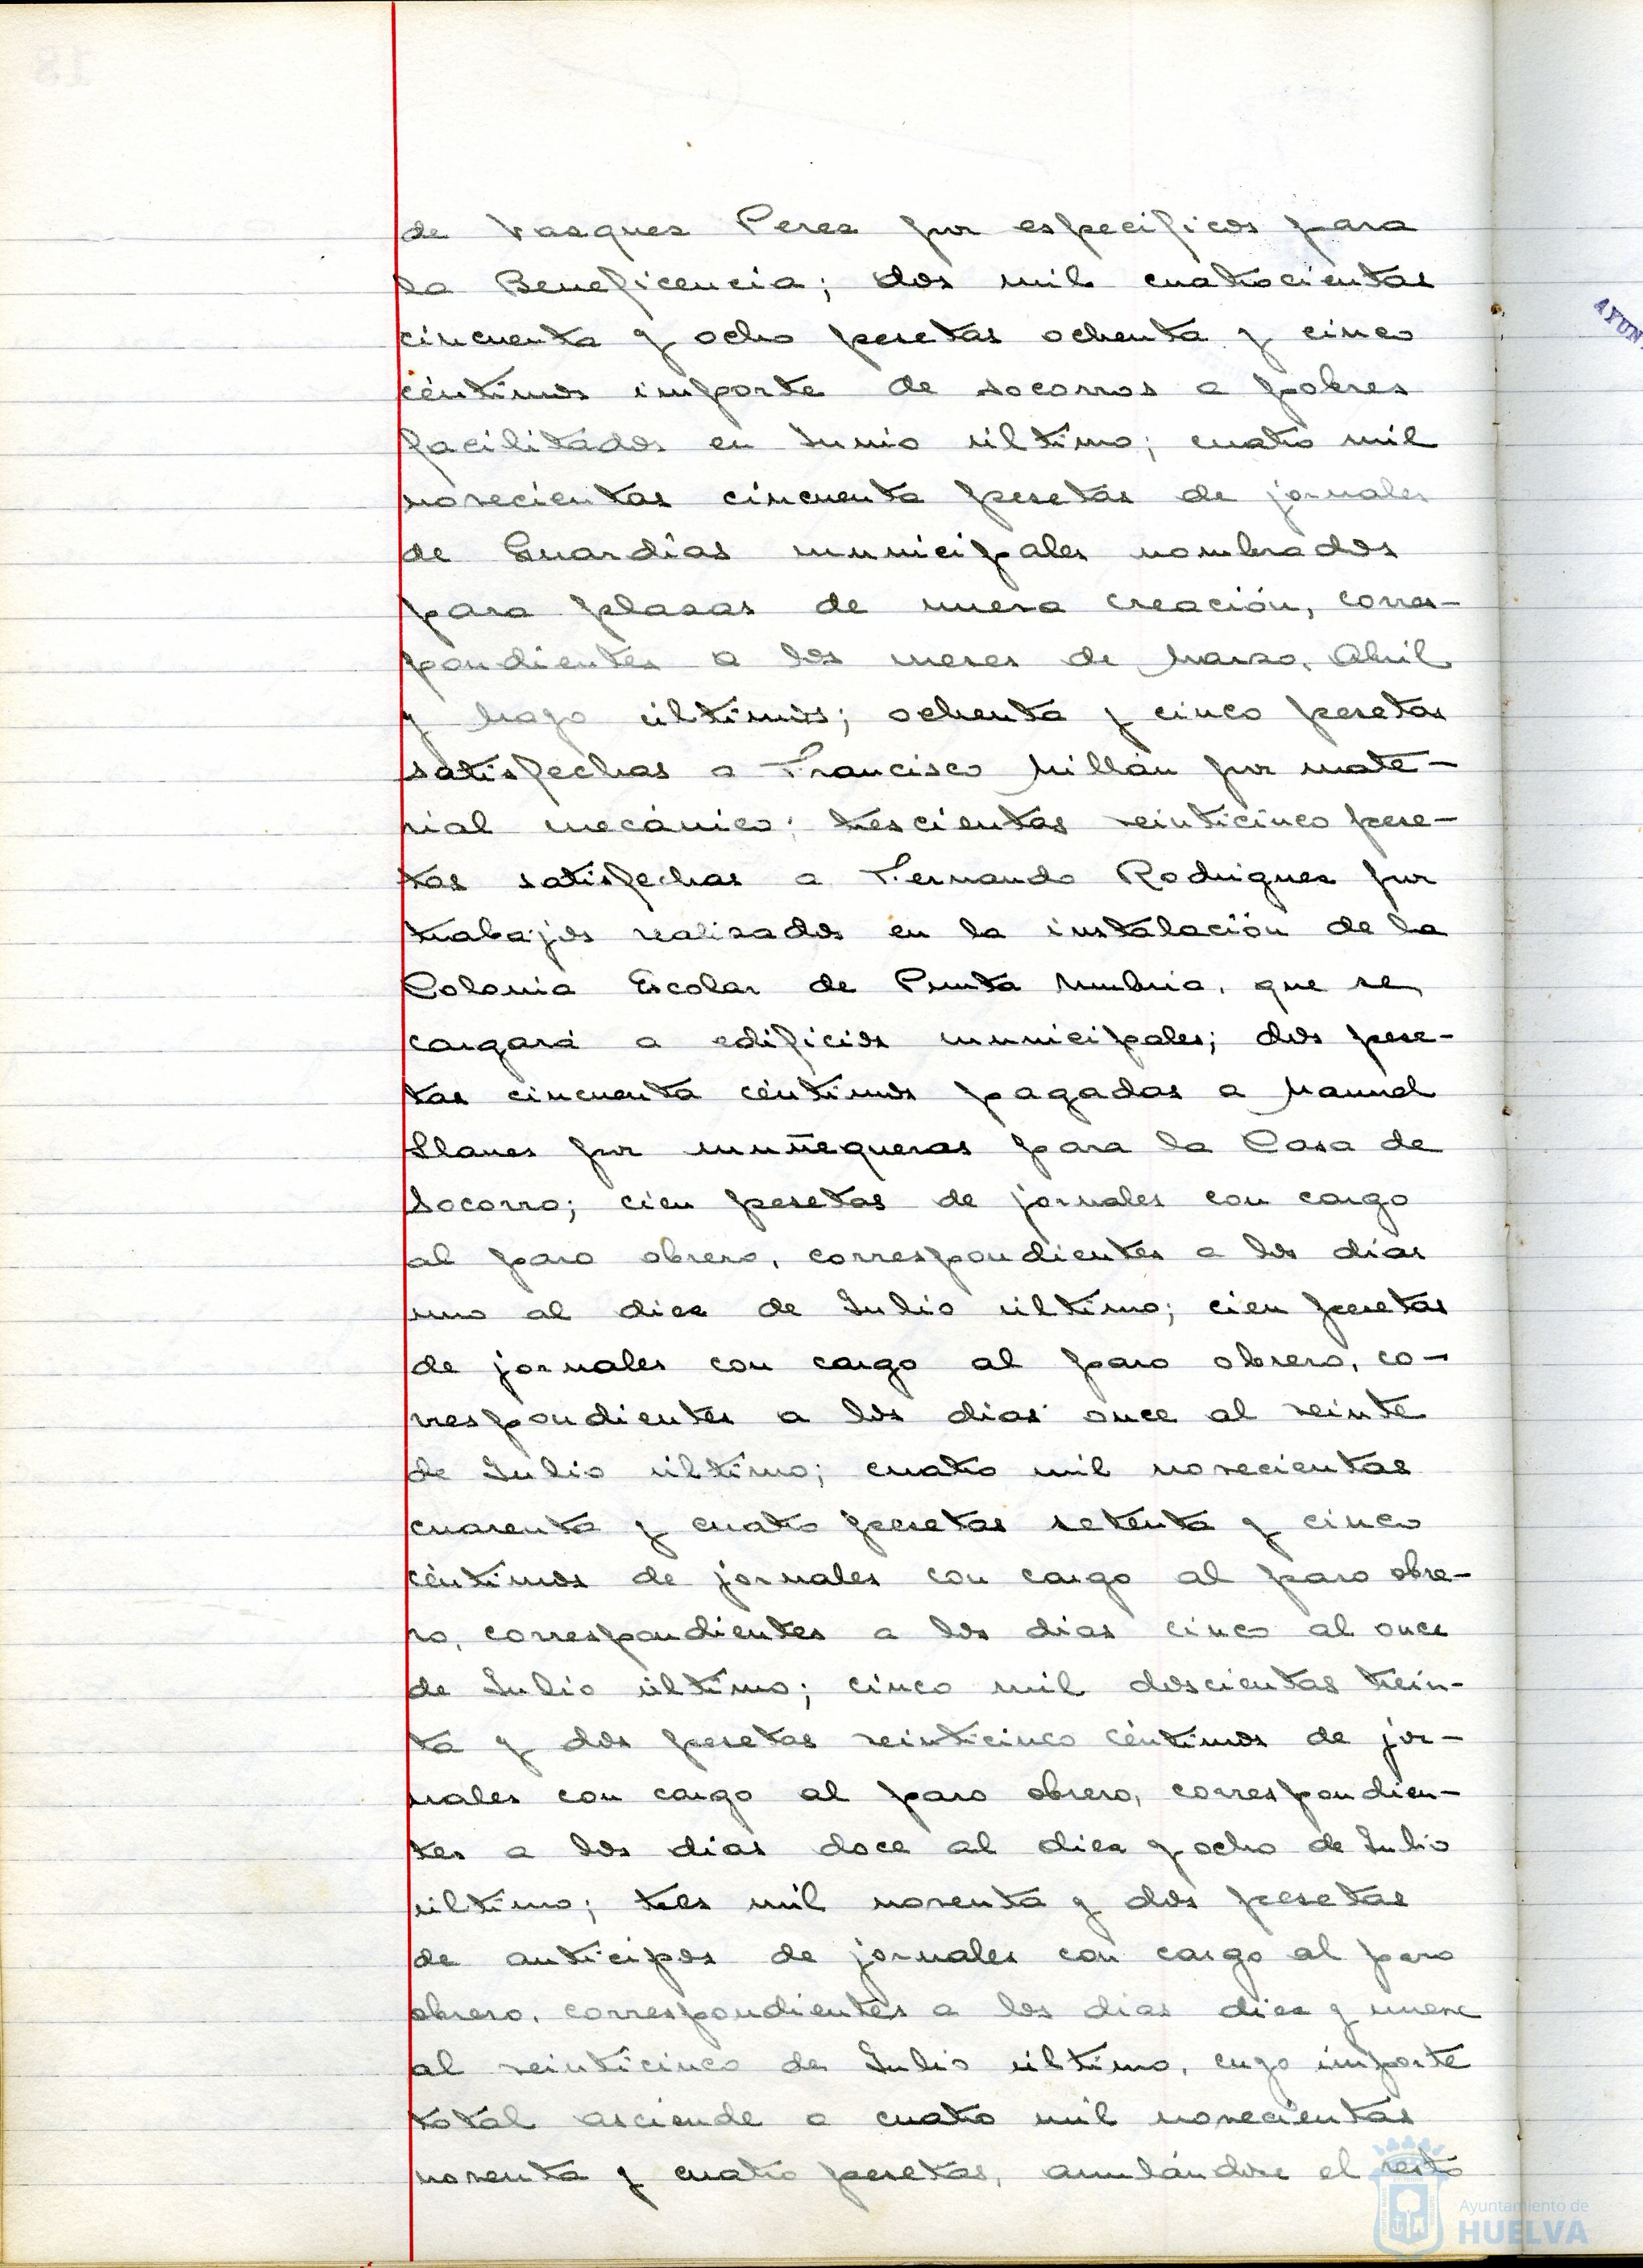 de Vasquez Perez por especificos para
la Beneficencia; dos mil cuatrocientas
cincuenta y ocho pesetas ochenta y cinco
céntimos importe de socorros a pobres
facilitados en Junio último; cuatro mil
novecientas cincuenta pesetas de jornales
de Guardias municipales nombrados
para plazas de nueva creación, corres-
pondientes a los meses de Marzo, Abril
y Mayo últimos; ochenta y cinco pesetas
satisfechas a Francisco Millán por mate-
rial mecánico; trescientas veinticinco pese-
tas satisfechas a Fernando Rodriguez por
trabajos realizados en la instalación de la
Colonia Escolar de Punta Umbria, que se
cargará a edificios municipales; dos pese-
tas cincuenta céntimos pagadas a Manuel
Llanes por muñequeras para la Casa de
Socorro; cien pesetas de jornales con cargo
al paro obrero, correspondientes a los días
uno al diez de Julio último; cien pesetas
de jornales con cargo al paro obrero, co-
rrespondientes a los dias once al veinte
de Julio último; cuatro mil novecientas
cuarenta y cuatro pesetas setenta y cinco
céntimos de jornales con cargo al paro obre-
ro, correspondientes a los dias cinco al once
de Julio último; cinco mil doscientas trein-
ta y dos pesetas veinticinco céntimos de jor-
nales con cargo al paro obrero, correspondien-
tes a los días doce al diez y ocho de Julio
último; tres mil noventa y dos pesetas
de anticipos de jornales con cargo al paro
obrero, correspondientes a los dias diez y nueve
al veinticinco de Julio último, cuyo importe
total asciende a cuatro mil novecientas
noventa y cuatro pesetas, anulándose el resto
AYUN
Ayuntamiento de
HUELVA